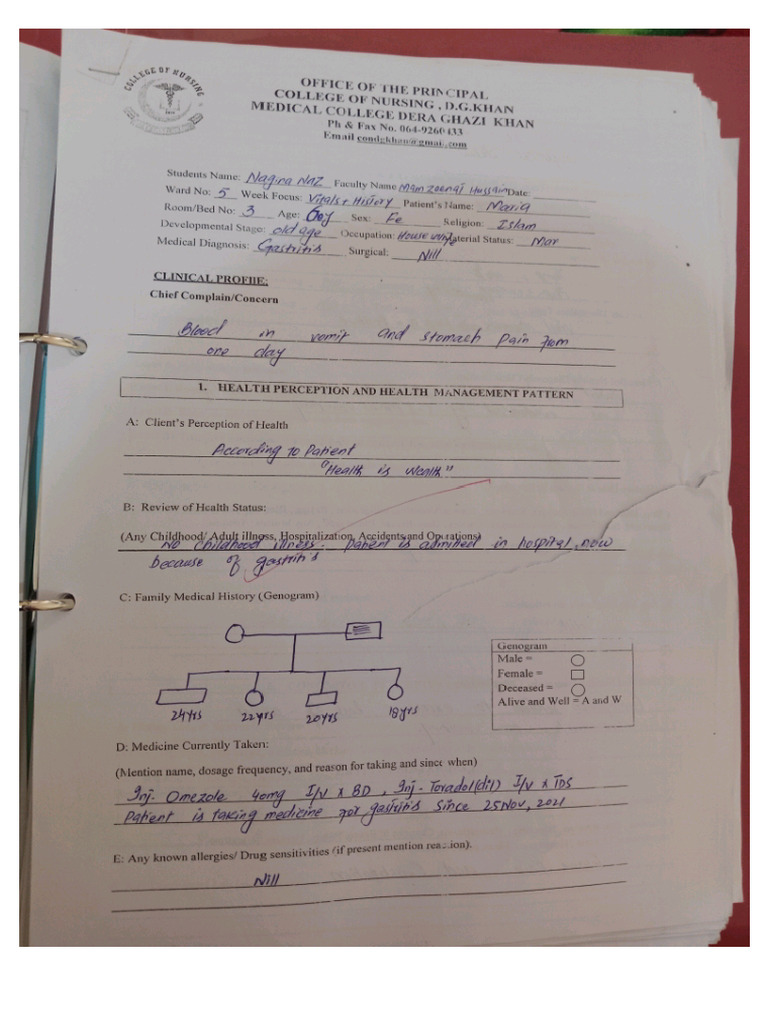 COLLEGE OF NURSING
OFFICE OF THE PRINCIPAL
COLLEGE OF NURSING , D.G.KHAN
MEDICAL COLLEGE DERA GHAZI KHAN
Ph & Fax No. 064-9260433
Email condgkhan@gmail.com
Students Name: Nagina Naz Faculty Name Mam Zeenat Hussain Date:
Ward No: 5 Week Focus: Vitals + History Patient's Name: Maria
Room/Bed No: 3 Age: 60y Sex: Fe Religion: Islam
Developmental Stage: old age Occupation: House wife Material Status: Mar
Medical Diagnosis: Gastritis Surgical: Nill
CLINICAL PROFILE:
Chief Complain/Concern
Blood in vomit and stomach pain from
one day
1. HEALTH PERCEPTION AND HEALTH MANAGEMENT PATTERN
A: Client's Perception of Health
According to Patient
"Health is Wealth"
B: Review of Health Status:
(Any Childhood/ Adult illness, Hospitalization, Accidents and Operations)
No childhood illness. Patient is admitted in hospital, now
because of gastritis
C: Family Medical History (Genogram)
24yrs 22yrs 20yrs 18yrs
Genogram
Male =
Female =
Deceased =
Alive and Well = A and W
D: Medicine Currently Taken:
(Mention name, dosage frequency, and reason for taking and since when)
Inj- Omezole 40mg I/v x BD , Inj- Toradol(dil) I/v x TDS
Patient is taking medicine for gastritis since 25 Nov, 2021
E: Any known allergies/ Drug sensitivities (if present mention reaction).
Nill